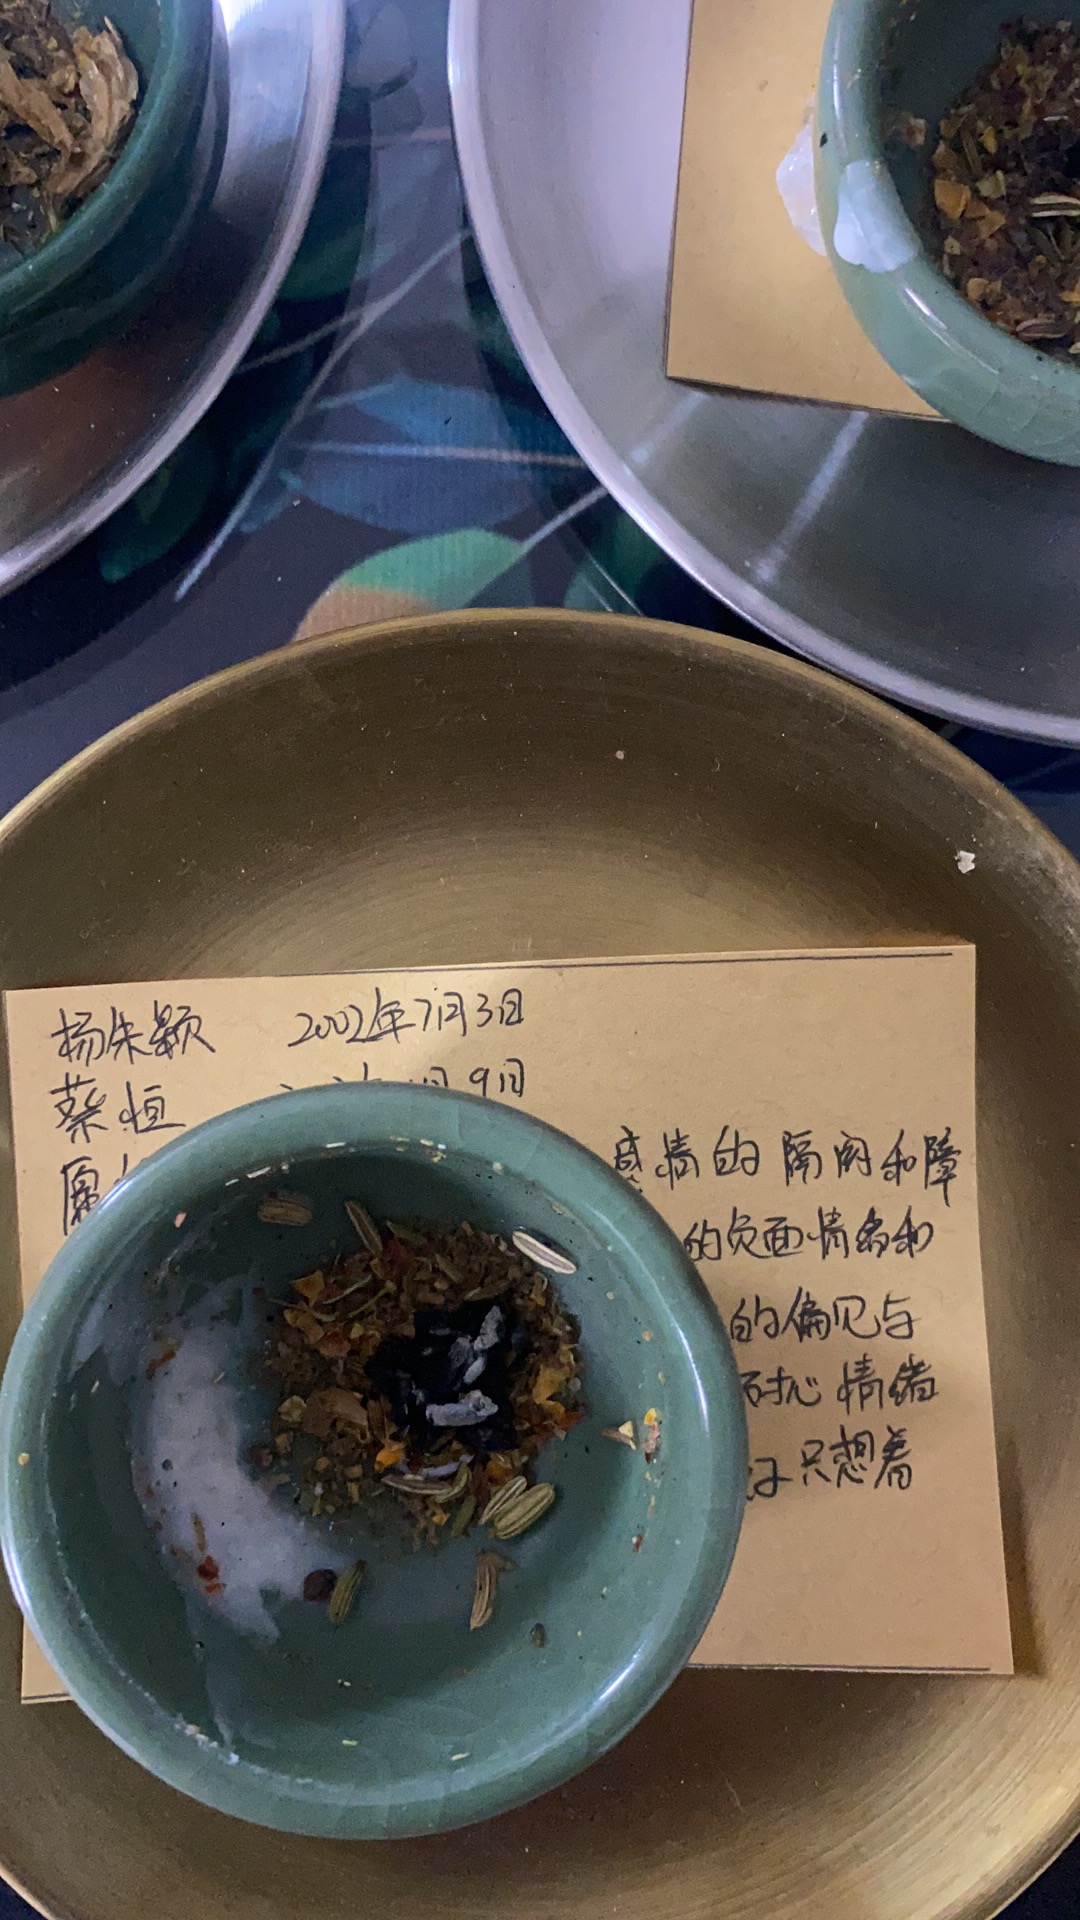 杨朱颖 2002年7月3日
蔡恒 月9日
愿 感情的隔阂和障
的负面情绪和
的偏见与
耐心 情绪
只想着